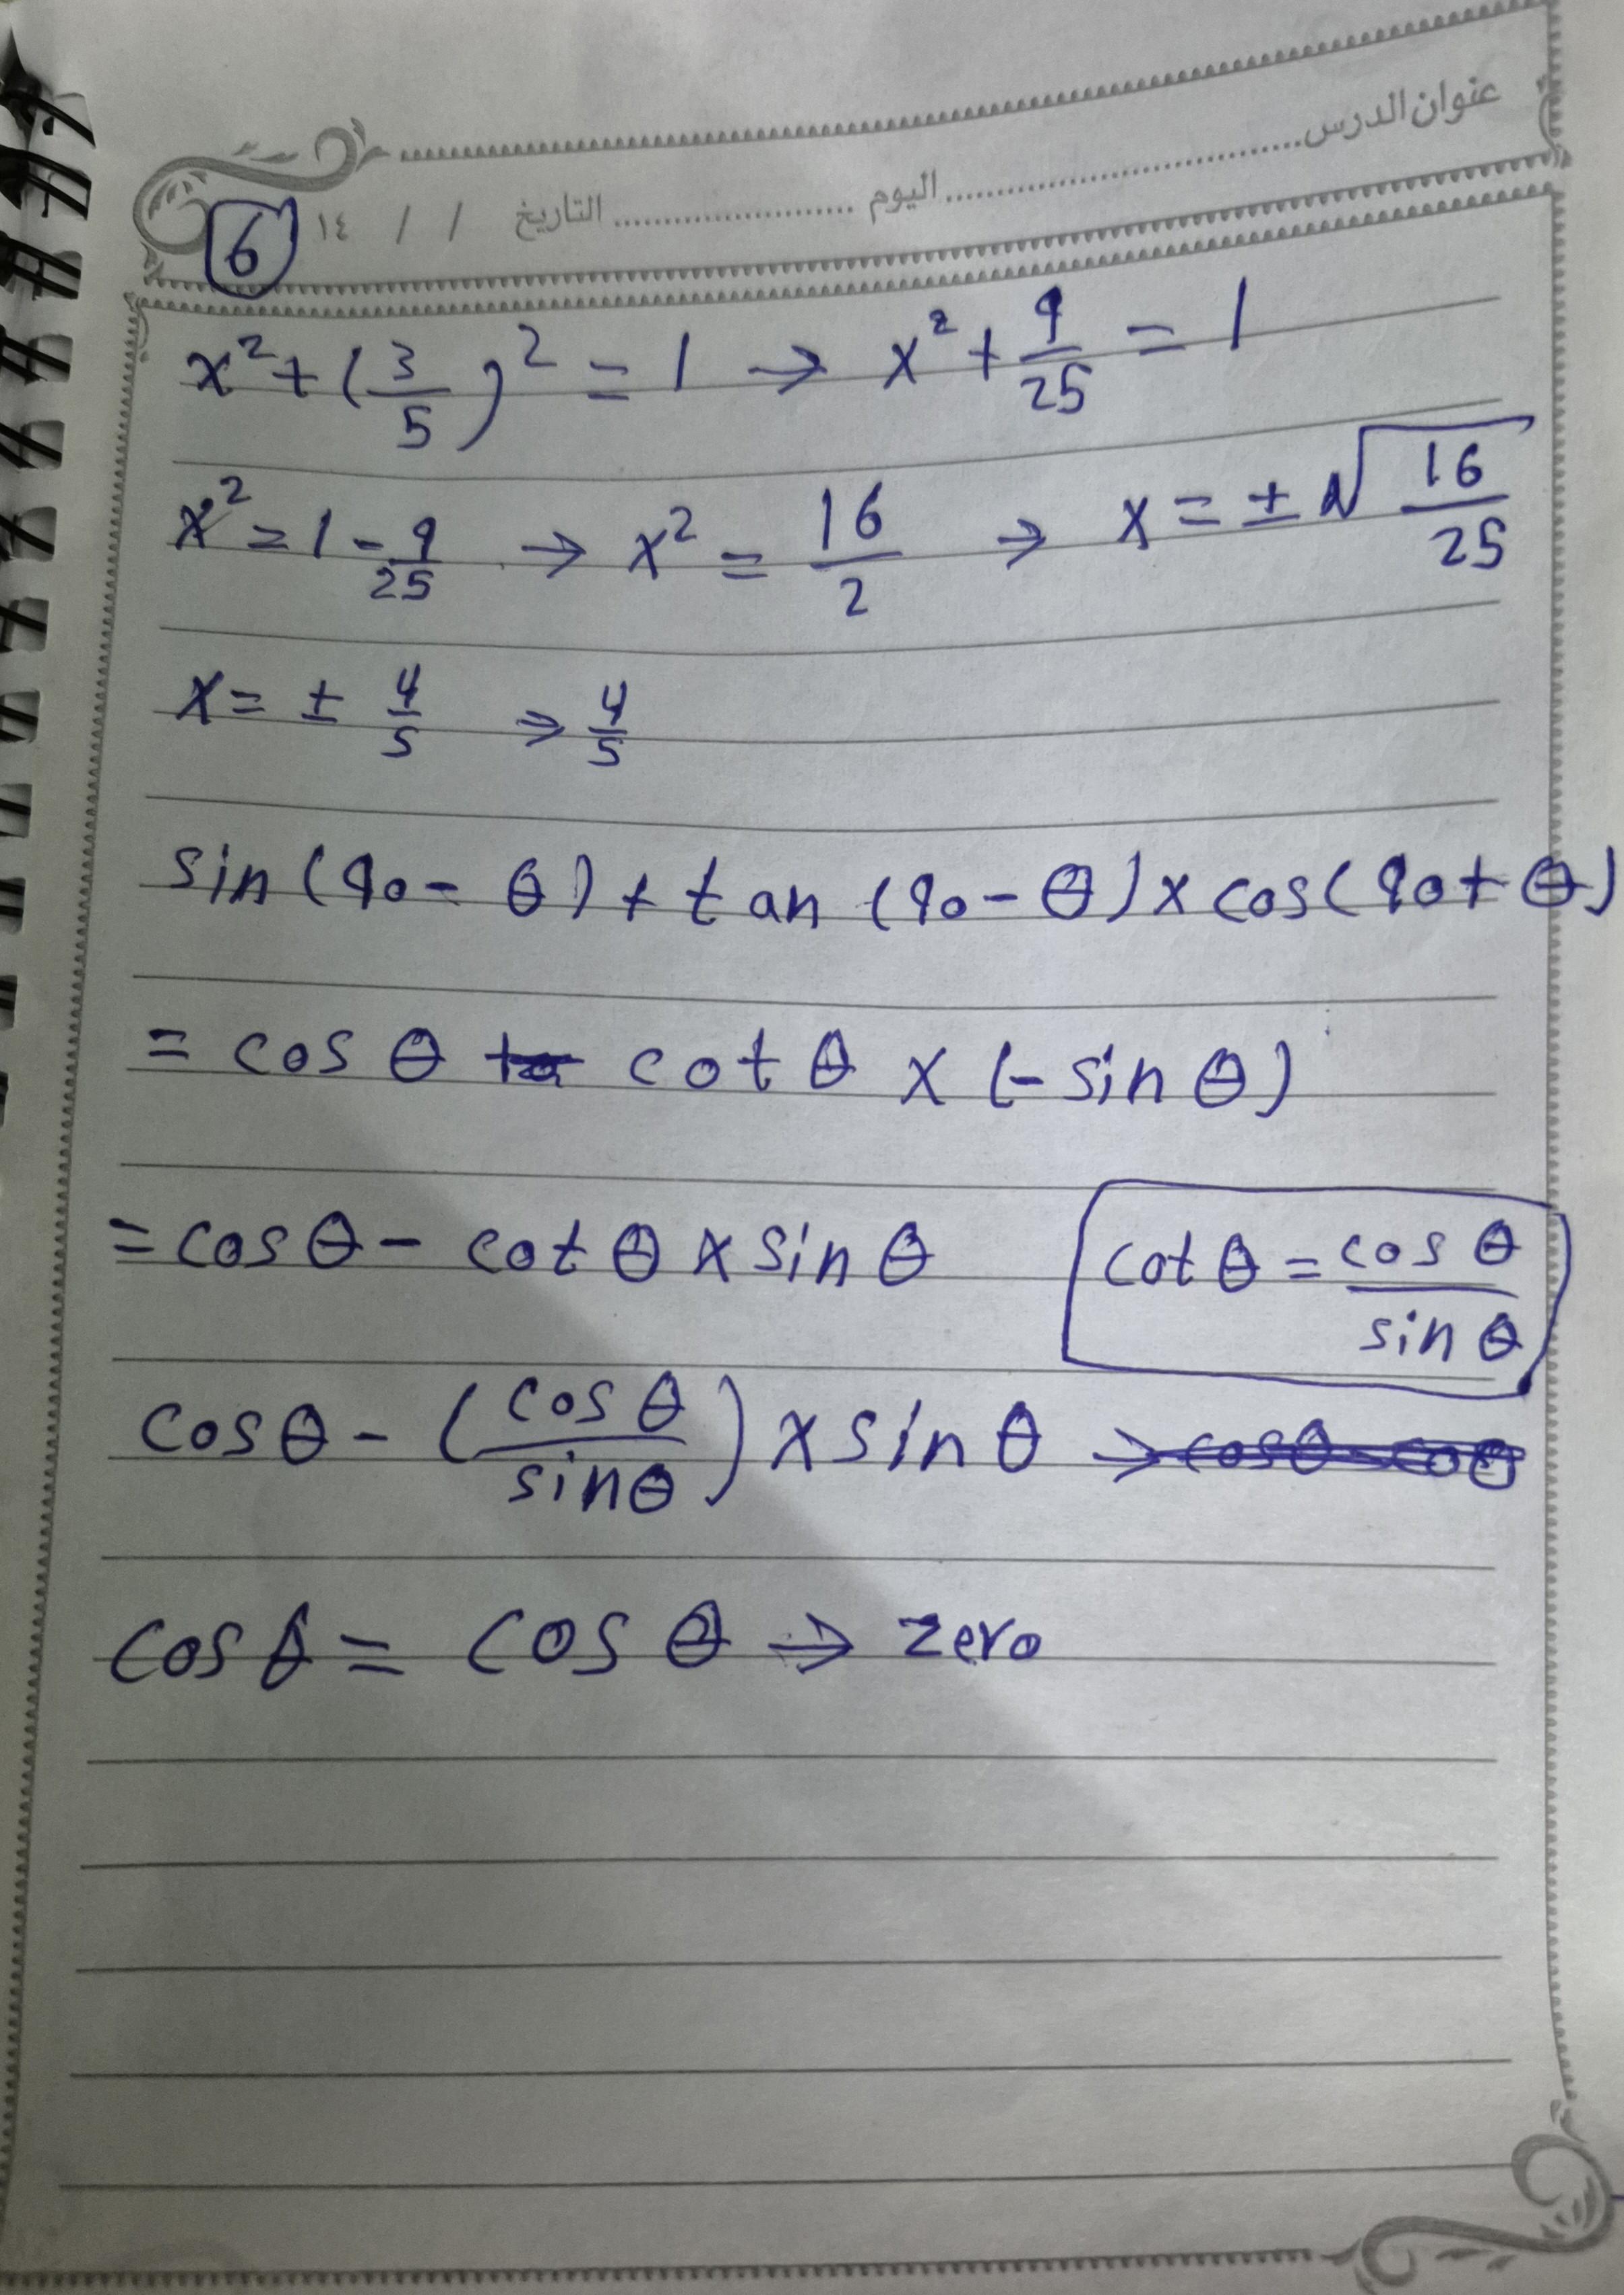 عنوان الدرس.............................. اليوم ........................ التاريخ / / ١٤
6
x² + (3/5)² = 1 → x² + 9/25 = 1
x² = 1 - 9/25 → x² = 16/2 → x = ± √16/25
x = ± 4/5 ⇒ 4/5
sin (90 - θ) + tan (90 - θ) x cos (90 + θ)
= cos θ + cot θ x (- sin θ)
= cos θ - cot θ x sin θ
cot θ = cos θ / sin θ
cos θ - (cos θ / sin θ) x sin θ →
cos θ = cos θ ⇒ zero